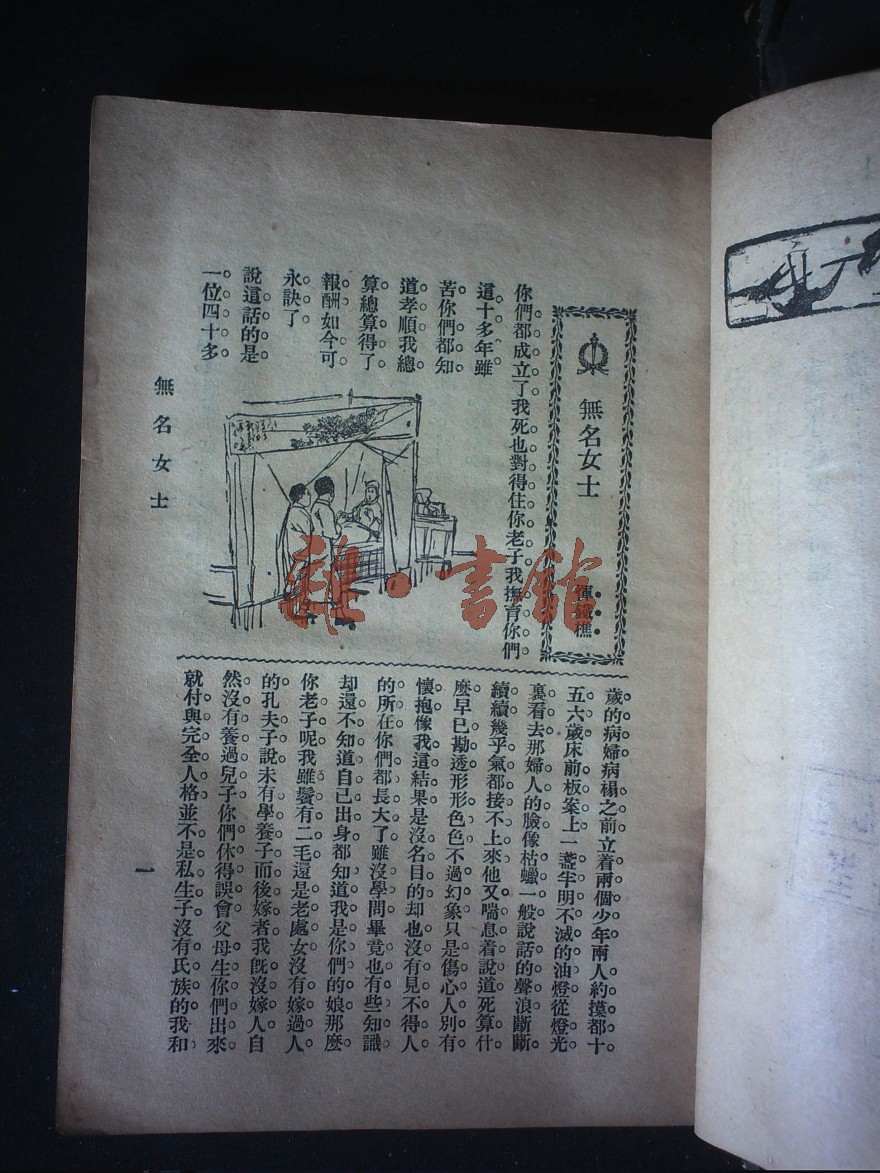 無名女士
惲鐵樵
你們都成立了。我死也對得住你老子。我撫育你們。
這十多年。雖
苦。你們都知
道孝順我。總
算總算得了
報酬。如今可
永訣了。
說這話的是
一位四十多
歲的病婦。病榻之前立着兩個少年。兩人約摸都十
五六歲。床前板案上一盞半明不滅的油燈。從燈光
裏看去。那婦人的臉像枯蠟一般。說話的聲浪斷斷
續續。幾乎氣都接不上來。他又喘息着說道。死算什
麼。早已勘透。形形色色。不過幻象。只是傷心人別有
懷抱。像我這結果。是沒名目的。却也沒有見不得人
的所在。你們都長大了。雖沒學問。畢竟也有些知識。
却還不知道自己出身。都知道我是你們的娘。那麼
你老子呢。我雖鬢有二毛。還是老處女。沒有嫁過人
的。孔夫子說。未有學養子而後嫁者。我旣沒嫁人。自
然沒有養過兒子。你們休得誤會。父母生你們出來。
就付與完全人格。並不是私生子。沒有氏族的。我和
無名女士
一
雜·書館